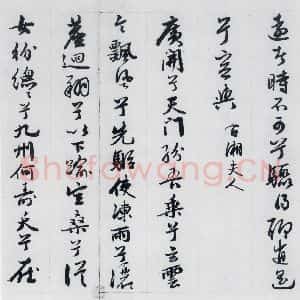 遠者時不可兮驟得聊逍遙
兮容與 右湘夫人
廣開兮天門紛吾乘兮玄雲
令飄風兮先驅使涷雨兮灑
塵迴翔兮以下踰空桑兮從
女紛總總兮九州何壽夭兮在
Shufawang.CN